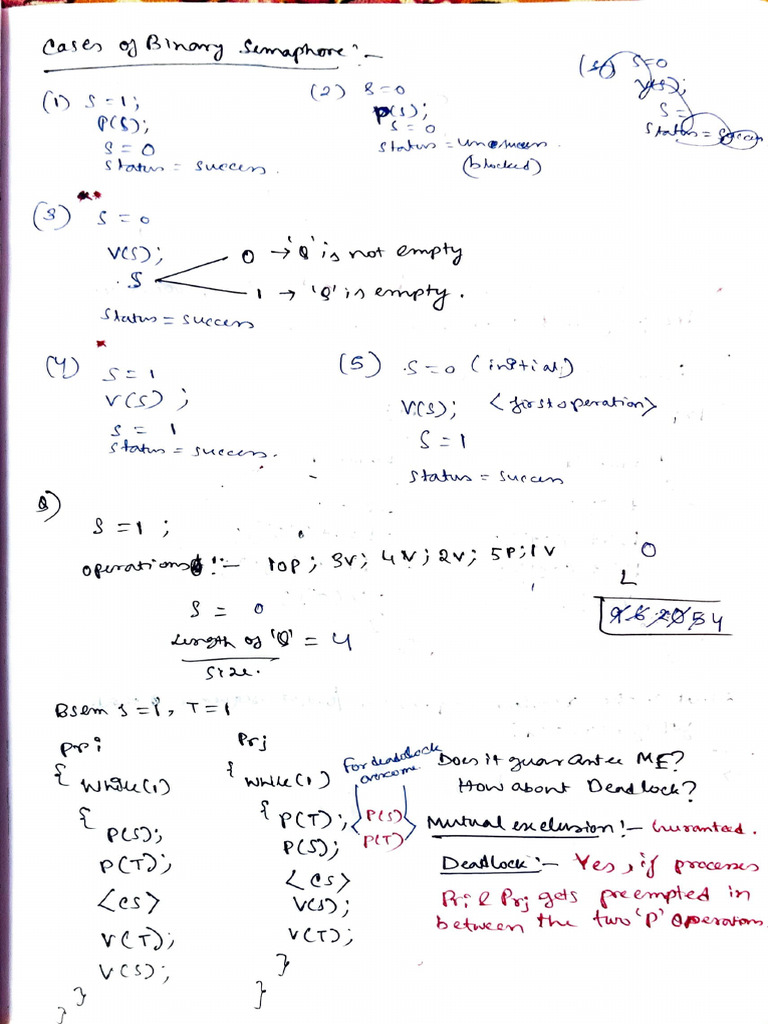 Cases of Binary Semaphore :-
(1) S = 1;
P(S);
S = 0
Status = success.
(2) S = 0
P(S);
S = 0
Status = unsuccess.
(blocked)
S=0
V(S);
S =
Status = Succes
(3) S = 0
V(S);
S
0 → 'Q' is not empty
1 → 'Q' is empty.
Status = success
(4) S = 1
V(S) ;
S = 1
Status = success.
(5) S = 0 (initial)
V(S); <first operation>
S = 1
Status = success
Q) S = 1 ;
operations :- 10P ; 3V; 4V; 2V; 5P; 1V
S = 0
Length of 'Q' = 4
size.
0
L
9 6 2 0 5 4
Bsem S = 1, T = 1
Pri
{ while(1)
{
P(S);
P(T);
<CS>
V(T);
V(S);
}
}
Prj
{ while(1)
{ P(T);
P(S);
<CS>
V(S);
V(T);
}
}
For deadlock
overcome
P(S)
P(T)
Does it guarantee ME?
How about Deadlock?
Mutual exclusion :- Guranteed.
Deadlock :- Yes, if processes
Pri & Prj gets preempted in
between the two 'P' operations.